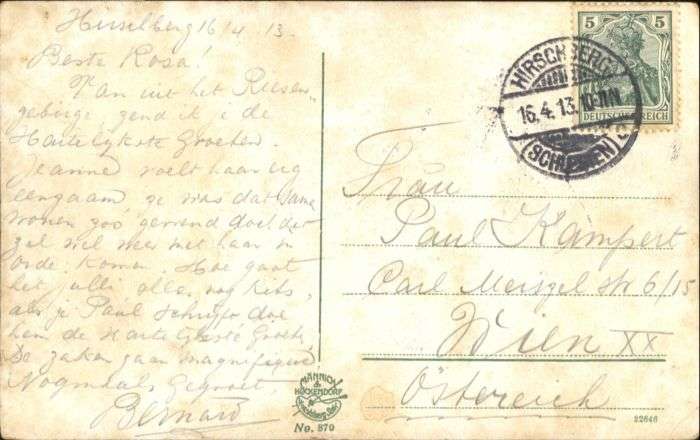 Hirschberg 16/4 13.
Beste Rosa!
Van uit het Riesen
gebirge zend ik je de
Hartelijkste Groeten.
Jeanne voelt haar erg
eenzaam je was dat same
wonen zoo gewend doch dit
zal wel weer met haar in
orde komen. Hoe gaat
het jullie allen nog
als je Paul schrijft doe
hem de Hartelijkste Groeten
De zaken gaan magnifique
Nogmaals Gegroet
Bernard
5 5
DEUTSCHES REICH
HIRSCHBERG
16.4.13. 10-11N
(SCHLESIEN)
Frau
Paul Kämpert
Carl Meiszel Str 6/15
Wien XX
Österreich
MÄNNICH & HÖCKENDORF
Hirschberg
No. 870
22646